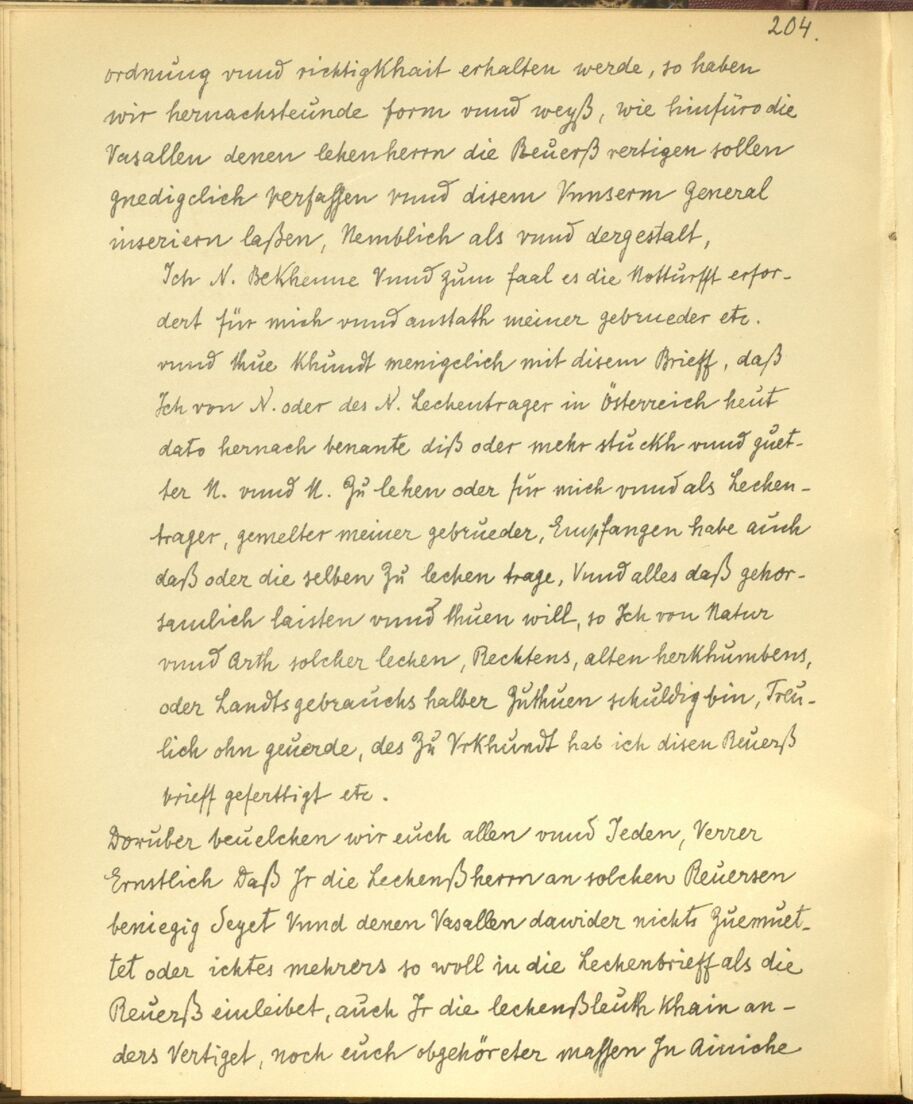 204.
ordnung vnnd richtigKhait erhalten werde, so haben
wir hernachsteünde form vnnd weyß, wie hinfüro die
Vasallen denen lehenherrn die Reuerß vertigen sollen
gnedigclich verfassen vnnd disem Vnnserm General
inseriern laßen, Nemblich als vnnd dergestalt,
Ich N. BeKhenne Vnnd zum faal es die Notturfft erfor-
dert für mich vnnd anstath meiner gebrueder etc.
vnnd thue Khundt menigclich mit disem Brieff, daß
Ich von N. oder des N. Lechentrager in Österreich heut
dato hernach benante diß oder mehr stuckh vnnd guet-
ter N. vnnd N. Zu lehen oder für mich vnnd als Lechen-
trager, gemelter meiner gebrueder, Empfangen habe auch
daß oder die selben Zu lechen trage, Vnnd alles daß gehor-
samlich laisten vnnd thuen will, so Ich von Natur
vnnd Arth solcher lechen, Rechtens, alten herKhumbens,
oder Landtsgebrauchs halber Zuthuen schuldig bin, Treu-
lich ohn geuerde, des Zu VrKhundt hab ich disen Reuerß
brieff geferttigt etc.
Doruber beuelchen wir euch allen vnnd Jeden, Verrer
Ernstlich Daß Jr die Lechenßherrn an solchen Reuersen
beniegig Seyet Vnnd denen Vasallen dawider nichts Zuemuet-
tet oder ichtes mehrers so woll in die Lechenbrieff als die
Reuerß einleibet, auch Jr die lechenßleuth Khain an-
ders Vertiget, noch euch obgehöreter massen Jn Ainiche